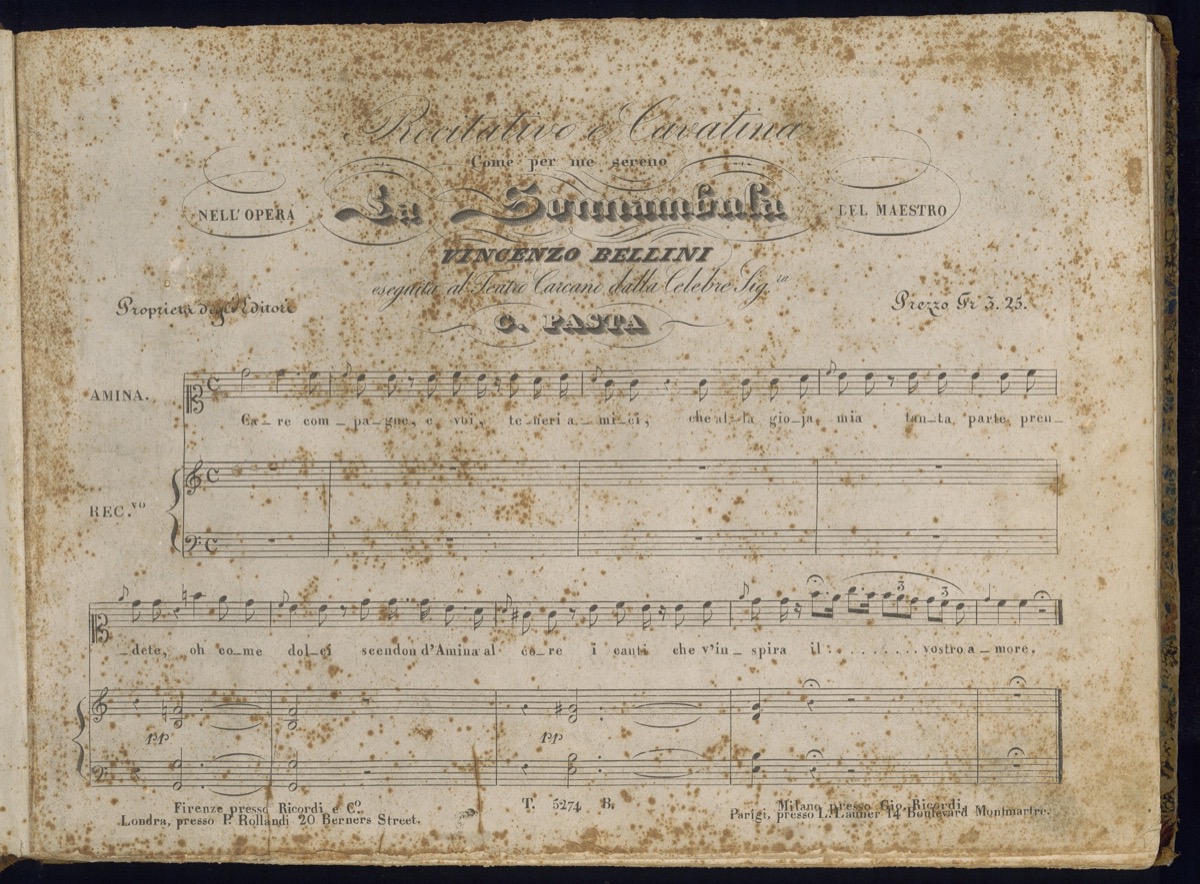 Recitativo e Cavatina
Come per me sereno
NELL' OPERA La Sonnambula DEL MAESTRO
VINCENZO BELLINI
eseguita al Teatro Carcano dalla Celebre Sig.ra
Proprietà degl'Editori Prezzo Fr 3. 25.
G. PASTA
AMINA.
Ca_re com_pa_gne, e voi, te_neri a_mi_ci, che al_la gio_ja mia tan_ta parte pren_
REC.vo
_dete, oh co_me dol_ci scendon d'Amina al co_re i canti che v'in_spira il . . . . . . . . vostro a_more.
pp pp
3 3
Firenze presso Ricordi e Co. T. 5274 B. Milano presso Gio. Ricordi.
Londra, presso P. Rollandi 20 Berners Street. Parigi, presso L. Launer 14 Boulevard Montmartre.